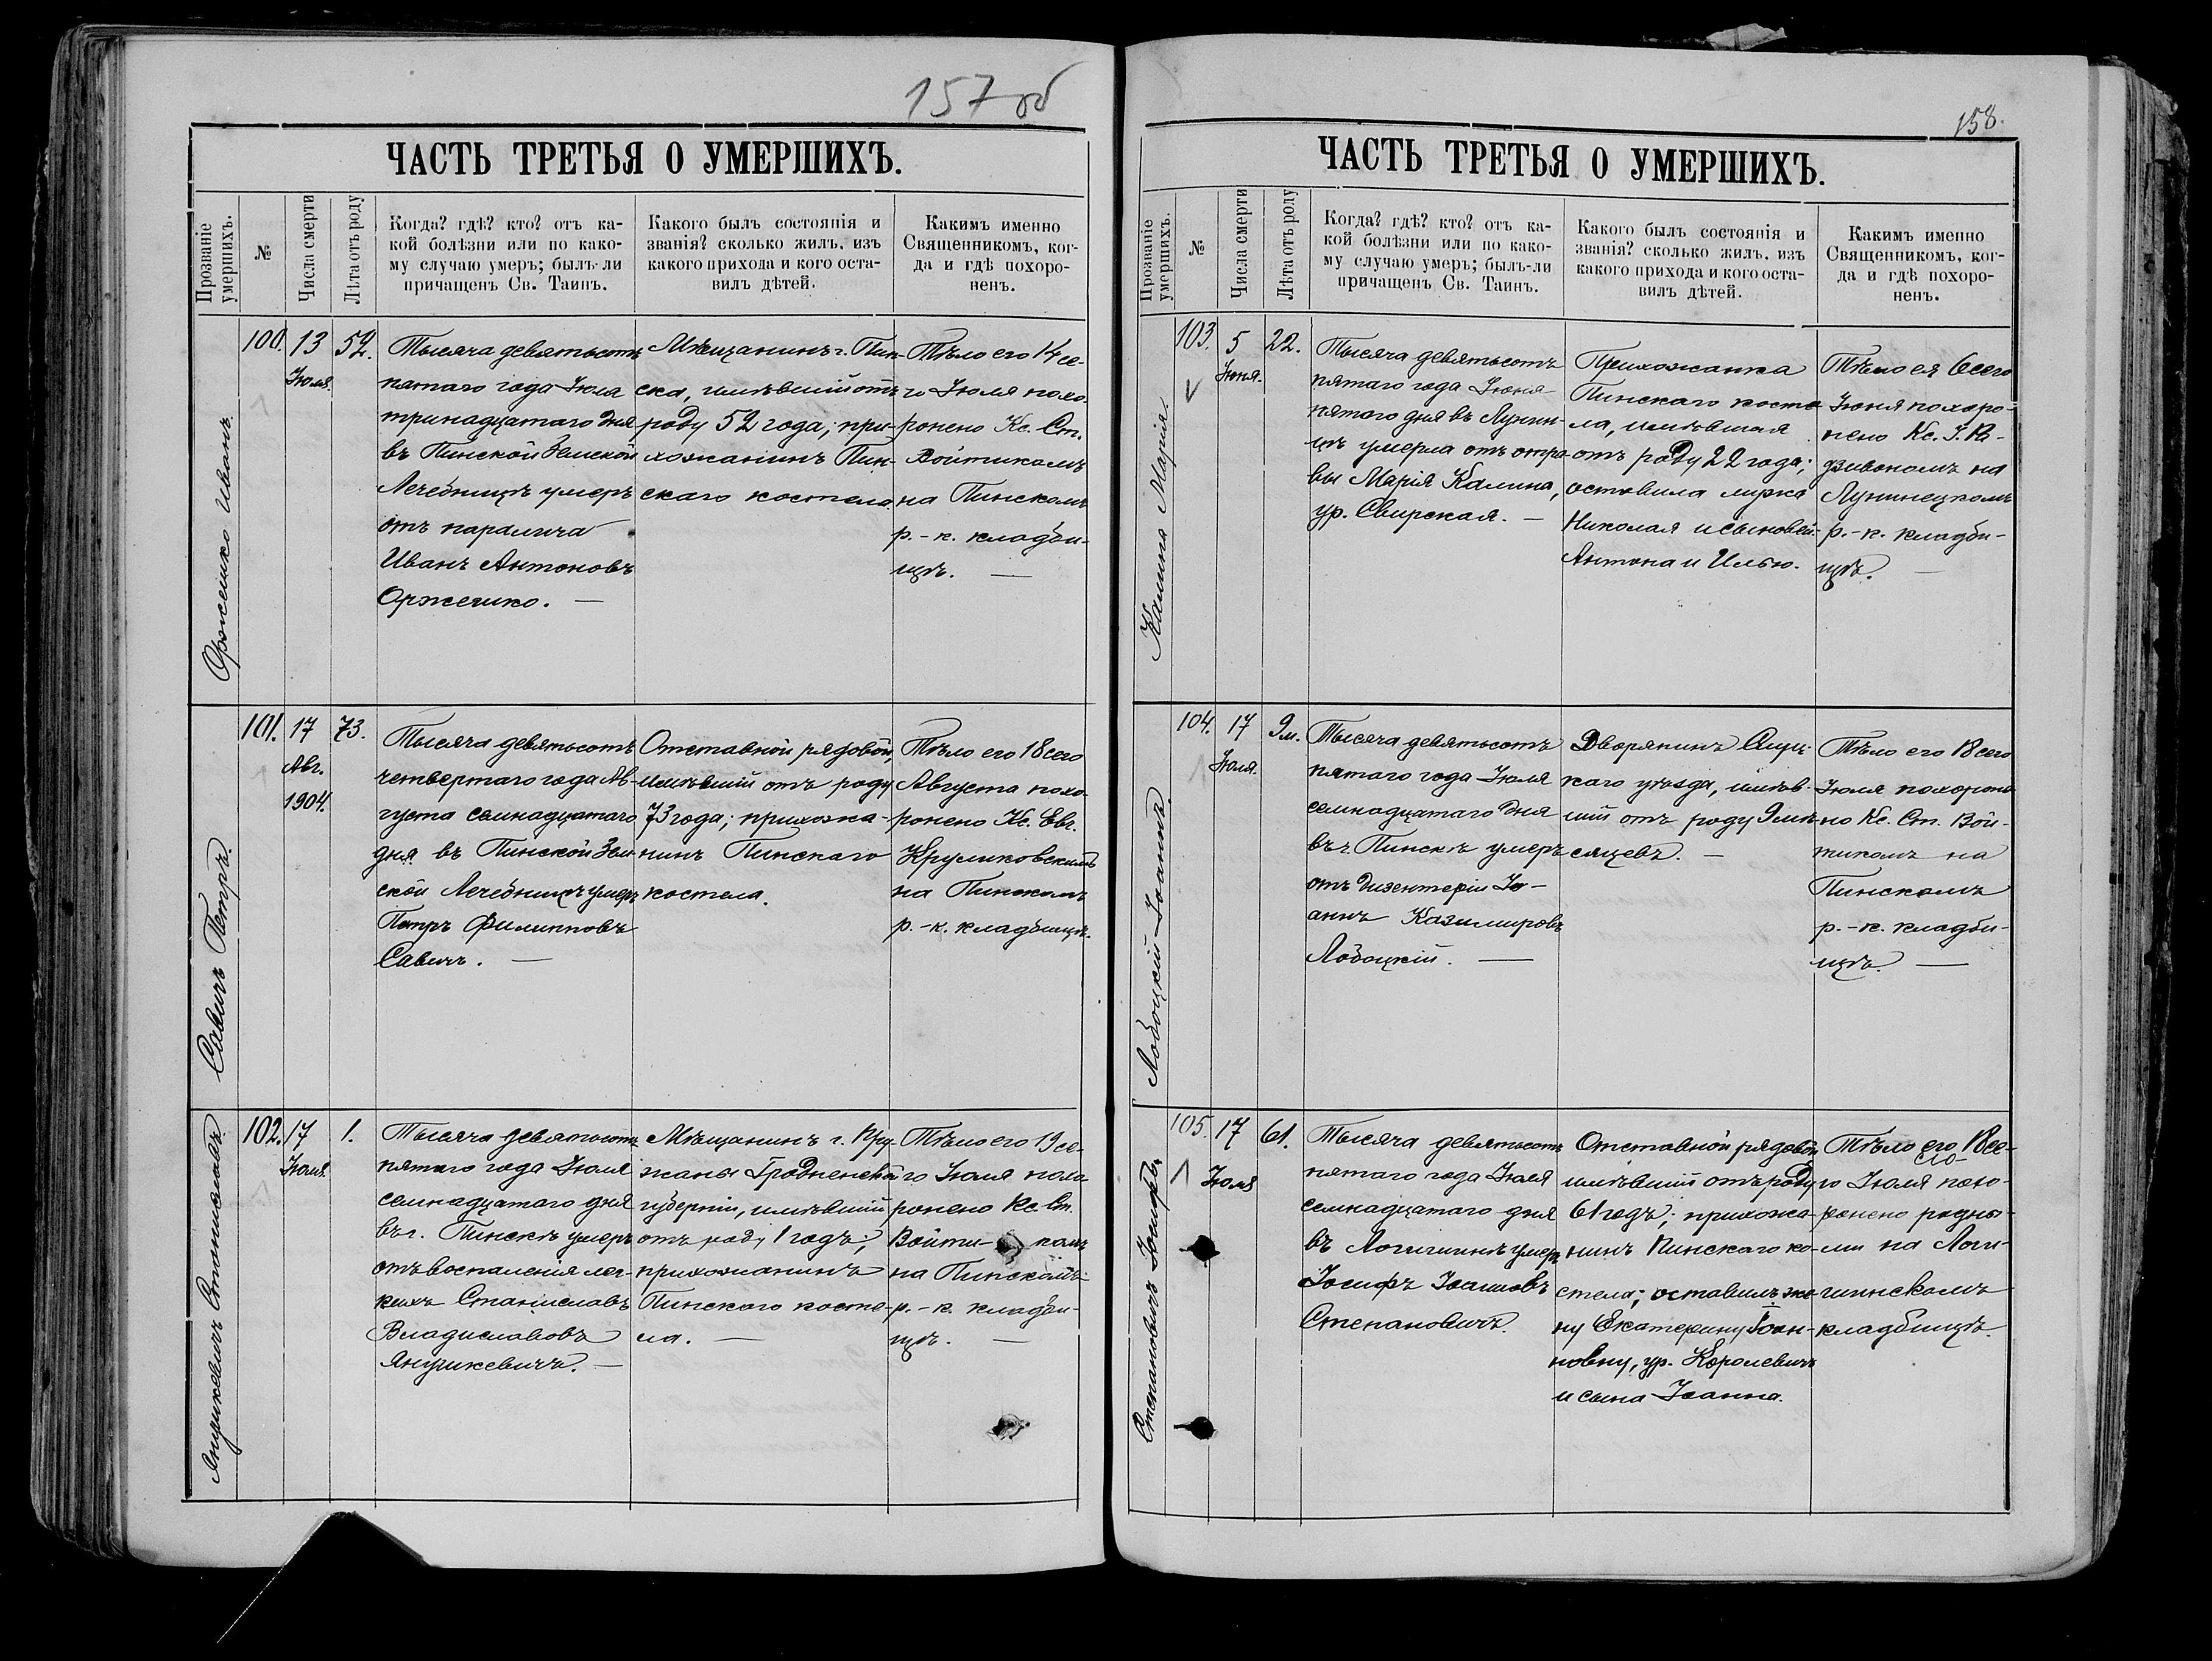 157 об
ЧАСТЬ ТРЕТЬЯ О УМЕРШИХЪ.
Прозваніе умершихъ.
№
Числа смерти
Лѣта отъ роду
Когда? гдѣ? кто? отъ ка-
кой болѣзни или по како-
му случаю умеръ; былъ-ли
причащенъ Св. Таинъ.
Какого былъ состоянія и
званія? сколько жилъ, изъ
какого прихода и кого оста-
вилъ дѣтей.
Какимъ именно
Священникомъ, ког-
да и гдѣ похоро-
ненъ.
Оржешко Иванъ.
100.
13
Іюля.
52.
Тысяча девятьсотъ
пятаго года Іюля
тринадцатаго дня
въ Пинской Земской
Лечебницѣ умеръ
отъ паралича
Иванъ Антоновъ
Оржешко. —
Мѣщанинъ г. Пин-
ска, имѣвшій отъ
роду 52 года; при-
хожанинъ Пин-
скаго костела.
Тѣло его 14 се-
го Іюля похо-
ронено Кс. Ст.
Войтикомъ
на Пинскомъ
р.-к. кладби-
щѣ. —
Савичъ Петръ.
101.
17
Авг.
1904.
73.
Тысяча девятьсотъ
четвертаго года Ав-
густа семнадцатаго
дня въ Пинской Зем-
ской Лечебницѣ умеръ
Петръ Филипповъ
Савичъ. —
Отставной рядовой,
имѣвшій отъ роду
73 года; прихожа-
нинъ Пинскаго
костела.
Тѣло его 18 сего
Августа похо-
ронено Кс. Евг.
Круликовскимъ
на Пинскомъ
р.-к. кладбищѣ.
Янушкевичъ Станиславъ.
102.
17
Іюля.
1.
Тысяча девятьсотъ
пятаго года Іюля
семнадцатаго дня
въ г. Пинскѣ умеръ
отъ воспаленія лег-
кихъ Станиславъ
Владиславовъ
Янушкевичъ. —
Мѣщанинъ г. Пру-
жаны Гродненской
губерніи, имѣвшій
отъ роду 1 годъ;
прихожанинъ
Пинскаго косте-
ла. —
Тѣло его 19 се-
го Іюля похо-
ронено Кс. Ст.
Войти- комъ
на Пинскомъ
р.-к. кладби-
щѣ. —
158.
ЧАСТЬ ТРЕТЬЯ О УМЕРШИХЪ.
Прозваніе умершихъ.
№
Числа смерти
Лѣта отъ роду
Когда? гдѣ? кто? отъ ка-
кой болѣзни или по како-
му случаю умеръ; былъ-ли
причащенъ Св. Таинъ.
Какого былъ состоянія и
званія? сколько жилъ, изъ
какого прихода и кого оста-
вилъ дѣтей.
Какимъ именно
Священникомъ, ког-
да и гдѣ похоро-
ненъ.
Калина Марія.
103.
5
Іюня.
22.
Тысяча девятьсотъ
пятаго года Іюня
пятаго дня въ Лунин-
цѣ умерла отъ отра-
вы Марія Калина,
ур. Свирская. —
Прихожанка
Пинскаго косте-
ла, имѣвшая
отъ роду 22 года;
оставила мужа
Николая и сыновей:
Антона и Илью.
Тѣло ея 6 сего
Іюня похоро-
нено Кс. І.
на
Лунинецкомъ
р.-к. кладби-
щѣ. —
Лобоцкій Іоаннъ.
104.
17
Іюля.
9 м.
Тысяча девятьсотъ
пятаго года Іюля
семнадцатаго дня
въ г. Пинскѣ умеръ
отъ дизентеріи Іо-
аннъ Казимировъ
Лобоцкій. —
Дворянинъ
каго уѣзда, имѣв-
шій отъ роду 9 мѣ-
сяцевъ. —
Тѣло его 18 сего
Іюля похороне-
но Кс. Ст. Вой-
тикомъ на
Пинскомъ
р.-к. кладби-
щѣ. —
Степановичъ Іосифъ.
105.
17
Іюля
61.
Тысяча девятьсотъ
пятаго года Іюля
семнадцатаго дня
въ Логишинѣ умеръ
Іосифъ Іоанновъ
Степановичъ.
Отставной рядовой
имѣвшій отъ роду
61 годъ; прихожа-
нинъ Пинскаго ко-
стела; оставилъ же-
ну Екатерину Іоан-
новну, ур. Королевичъ
и сына Іоанна.
Тѣло его 18 се-
го Іюля похо-
ронено родны-
ми на Логи-
шинскомъ
кладбищѣ.